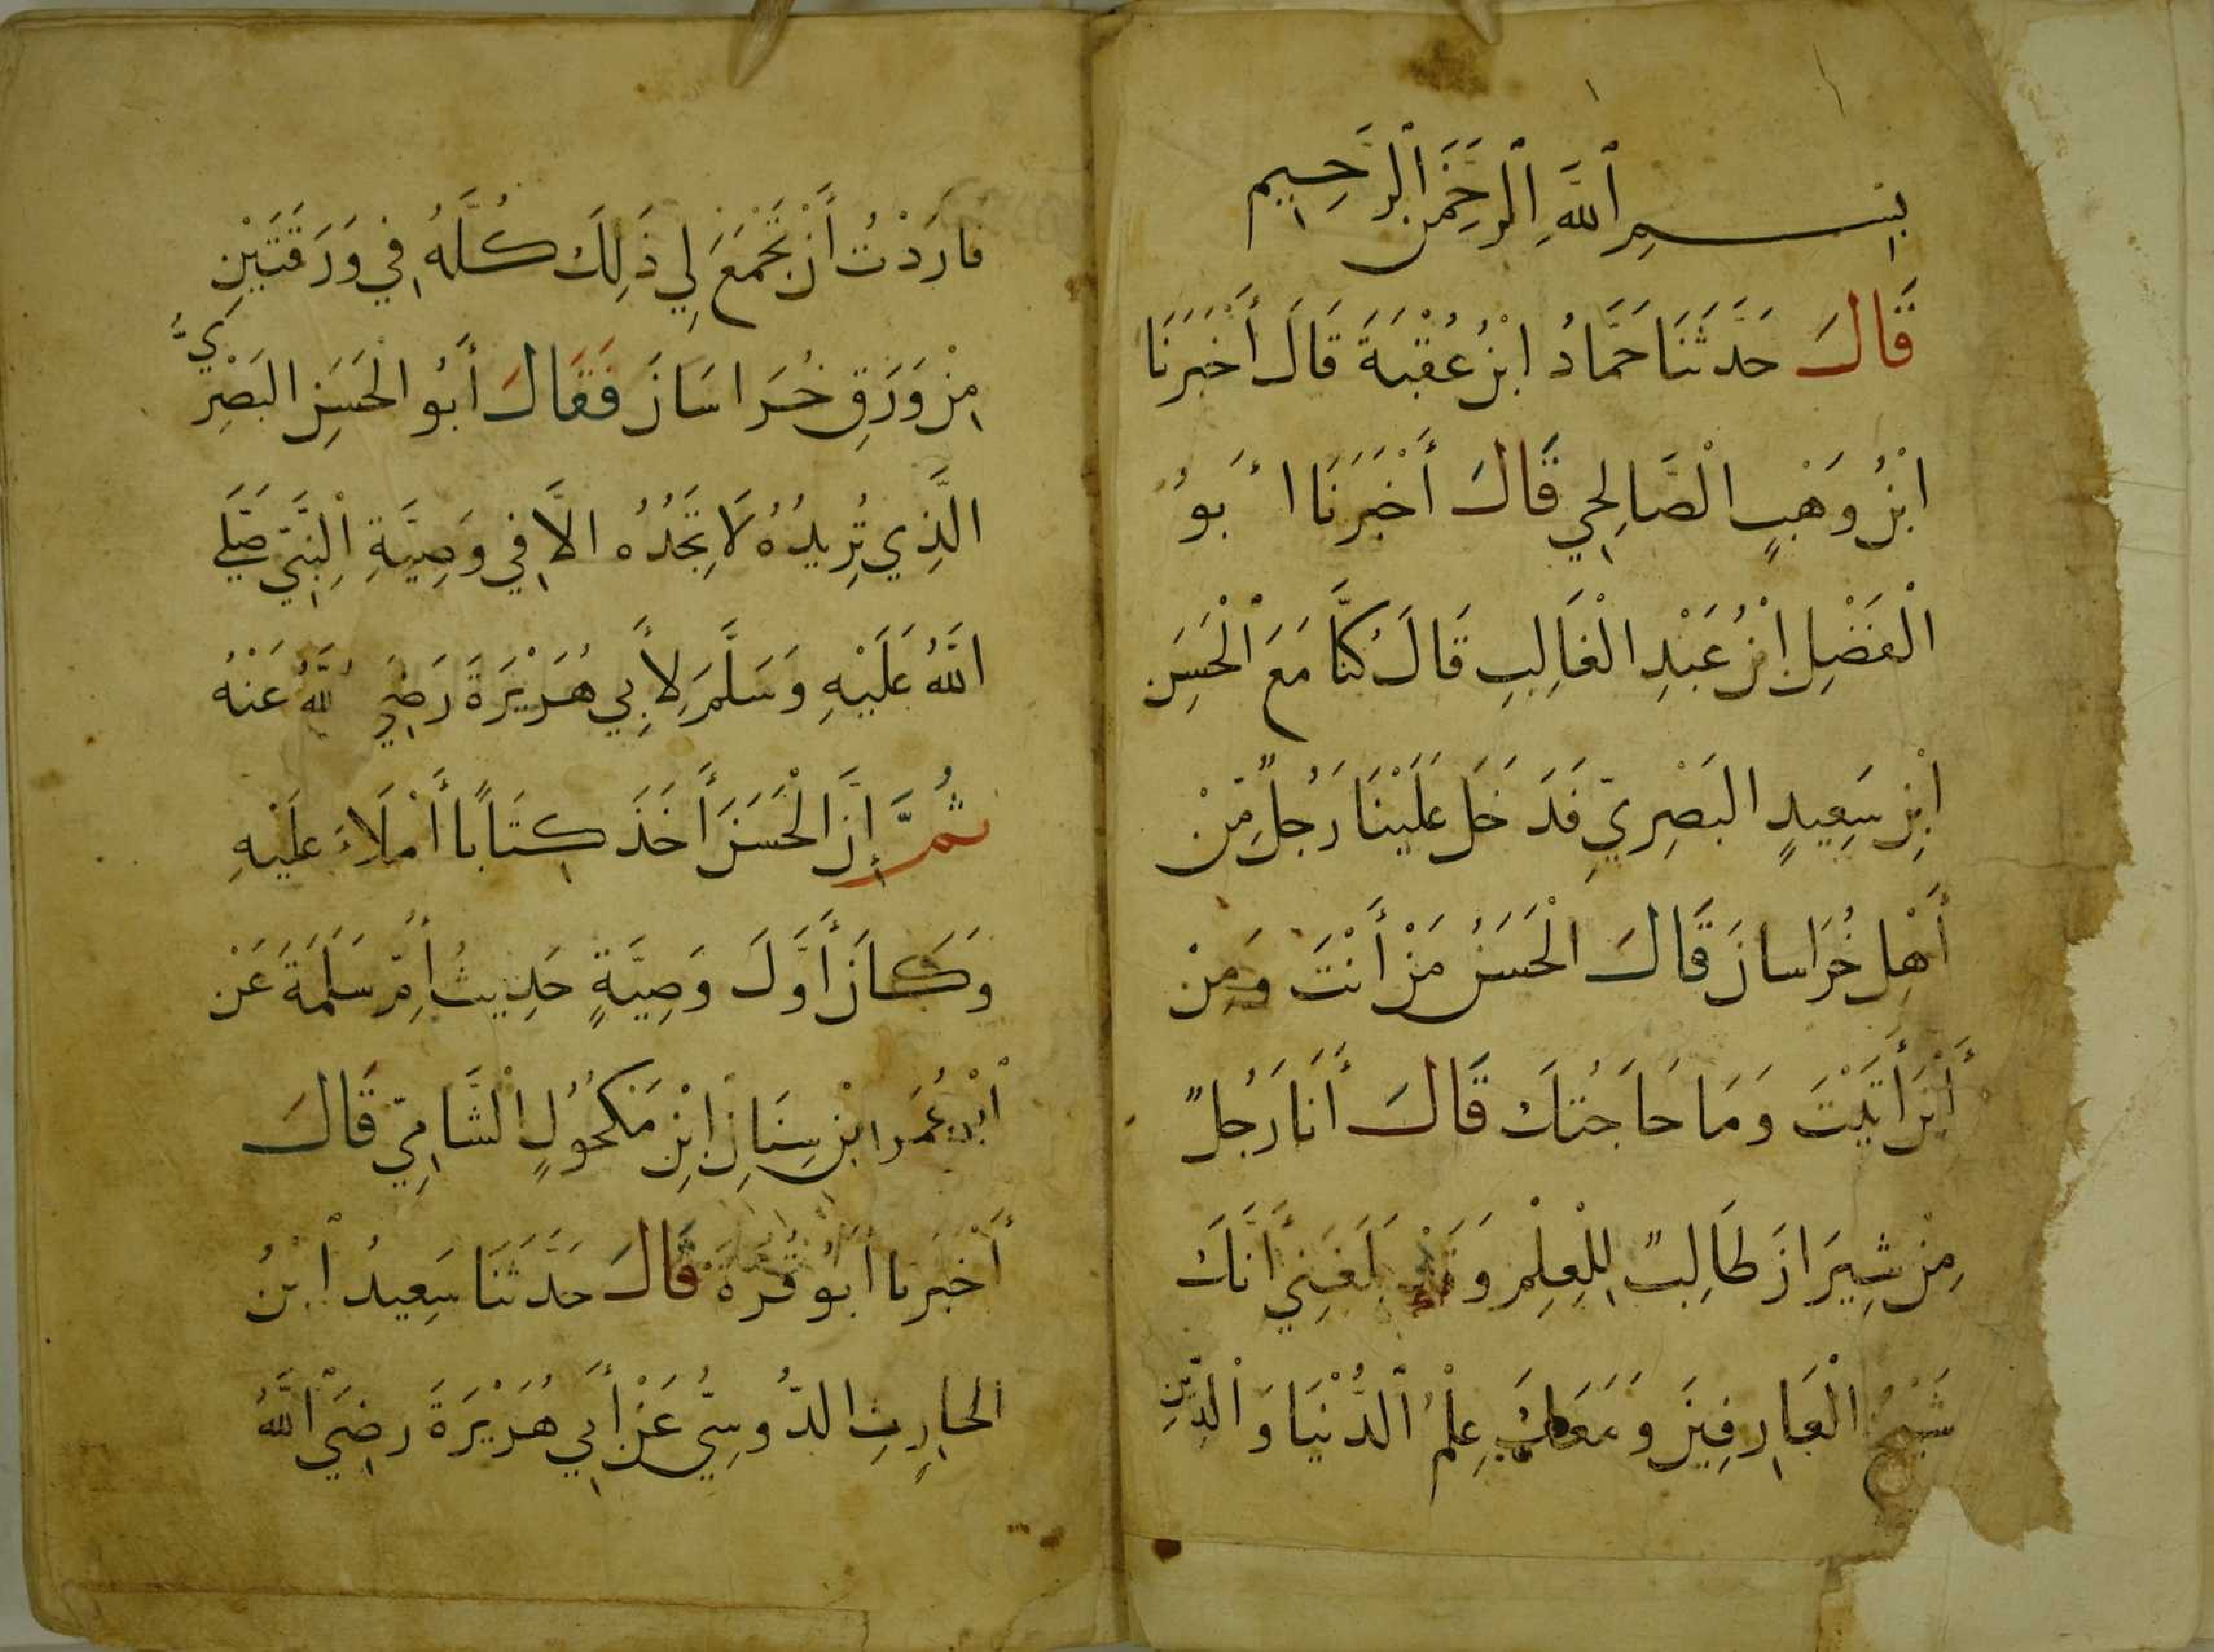 بِسْمِ ٱللَّهِ ٱلرَّحْمَنِ ٱلرَّحِيمِ
قَالَ حَدَّثَنَا حَمَّادُ ابْنُ عُقْبَةَ قَالَ أَخْبَرَنَا
ابْنُ وَهْبٍ الْصَّالِحِي قَالَ أَخْبَرَنَا أَبُو
الْفَضْلِ ابْنُ عَبْدِ الْغَالِبِ قَالَ كُنَّا مَعَ ٱلْحَسَنِ
ابْنِ سَعِيدٍ البَصْرِيِّ فَدَخَلَ عَلَيْنَا رَجُلٌ مِّنْ
أَهْلِ خُرَاسَانَ قَالَ الْحَسَنُ مَنْ أَنْتَ وَمِنْ
أَيْنَ أَتَيْتَ وَمَا حَاجَتُكَ قَالَ أَنَا رَجُلٌ
مِنْ شِيرَازَ طَالِبٌ لِلْعِلْمِ وَقَدْ بَلَغَنِي أَنَّكَ
شَيْخُ الْعَارِفِينَ وَمَعَكَ عِلْمُ ٱلدُّنْيَا وَالْدِّينِ
فارَدْتُ أَنْ تَجْمَعَ لِي ذَلِكَ كُلَّهُ فِي وَرَقَتَيْنِ
مِنْ وَرَقِ خُرَاسَانَ فَقَالَ أَبُو الْحَسَنِ البَصْرِيُّ
الَّذِي تُرِيدُهُ لَا تَجِدُهُ الاَّ فِي وَصِيَّةِ اْلنَّبِيِّ صَلَّى
اللَّهُ عَلَيْهِ وَسَلَّمَ لِأَبِي هُرَيْرَةَ رَضِيَ اللَّهُ عَنْهُ
ثُمَّ إِنَّ الْحَسَنَ أَخَذَ كِتَابًا أَمْلَاءَ عَلَيْهِ
وَكَانَ أَوَّلَ وَصِيَّةٍ حَدِيثُ أُمِّ سَلَمَةَ عَنْ
ٱبْنِ عُمَر ابْنِ سِنَانِ ابْنِ مَكْحُولٍ اْلشَّامِيِّ قَالَ
أَخْبَرنا أَبُو قُرَّة قَالَ حَدَّثَنَا سَعِيدُ ٱبْنُ
الحارِثِ الدُّوسِيُّ عَنْ أَبِي هُرَيْرَةَ رضِيَ ٱللَّهُ